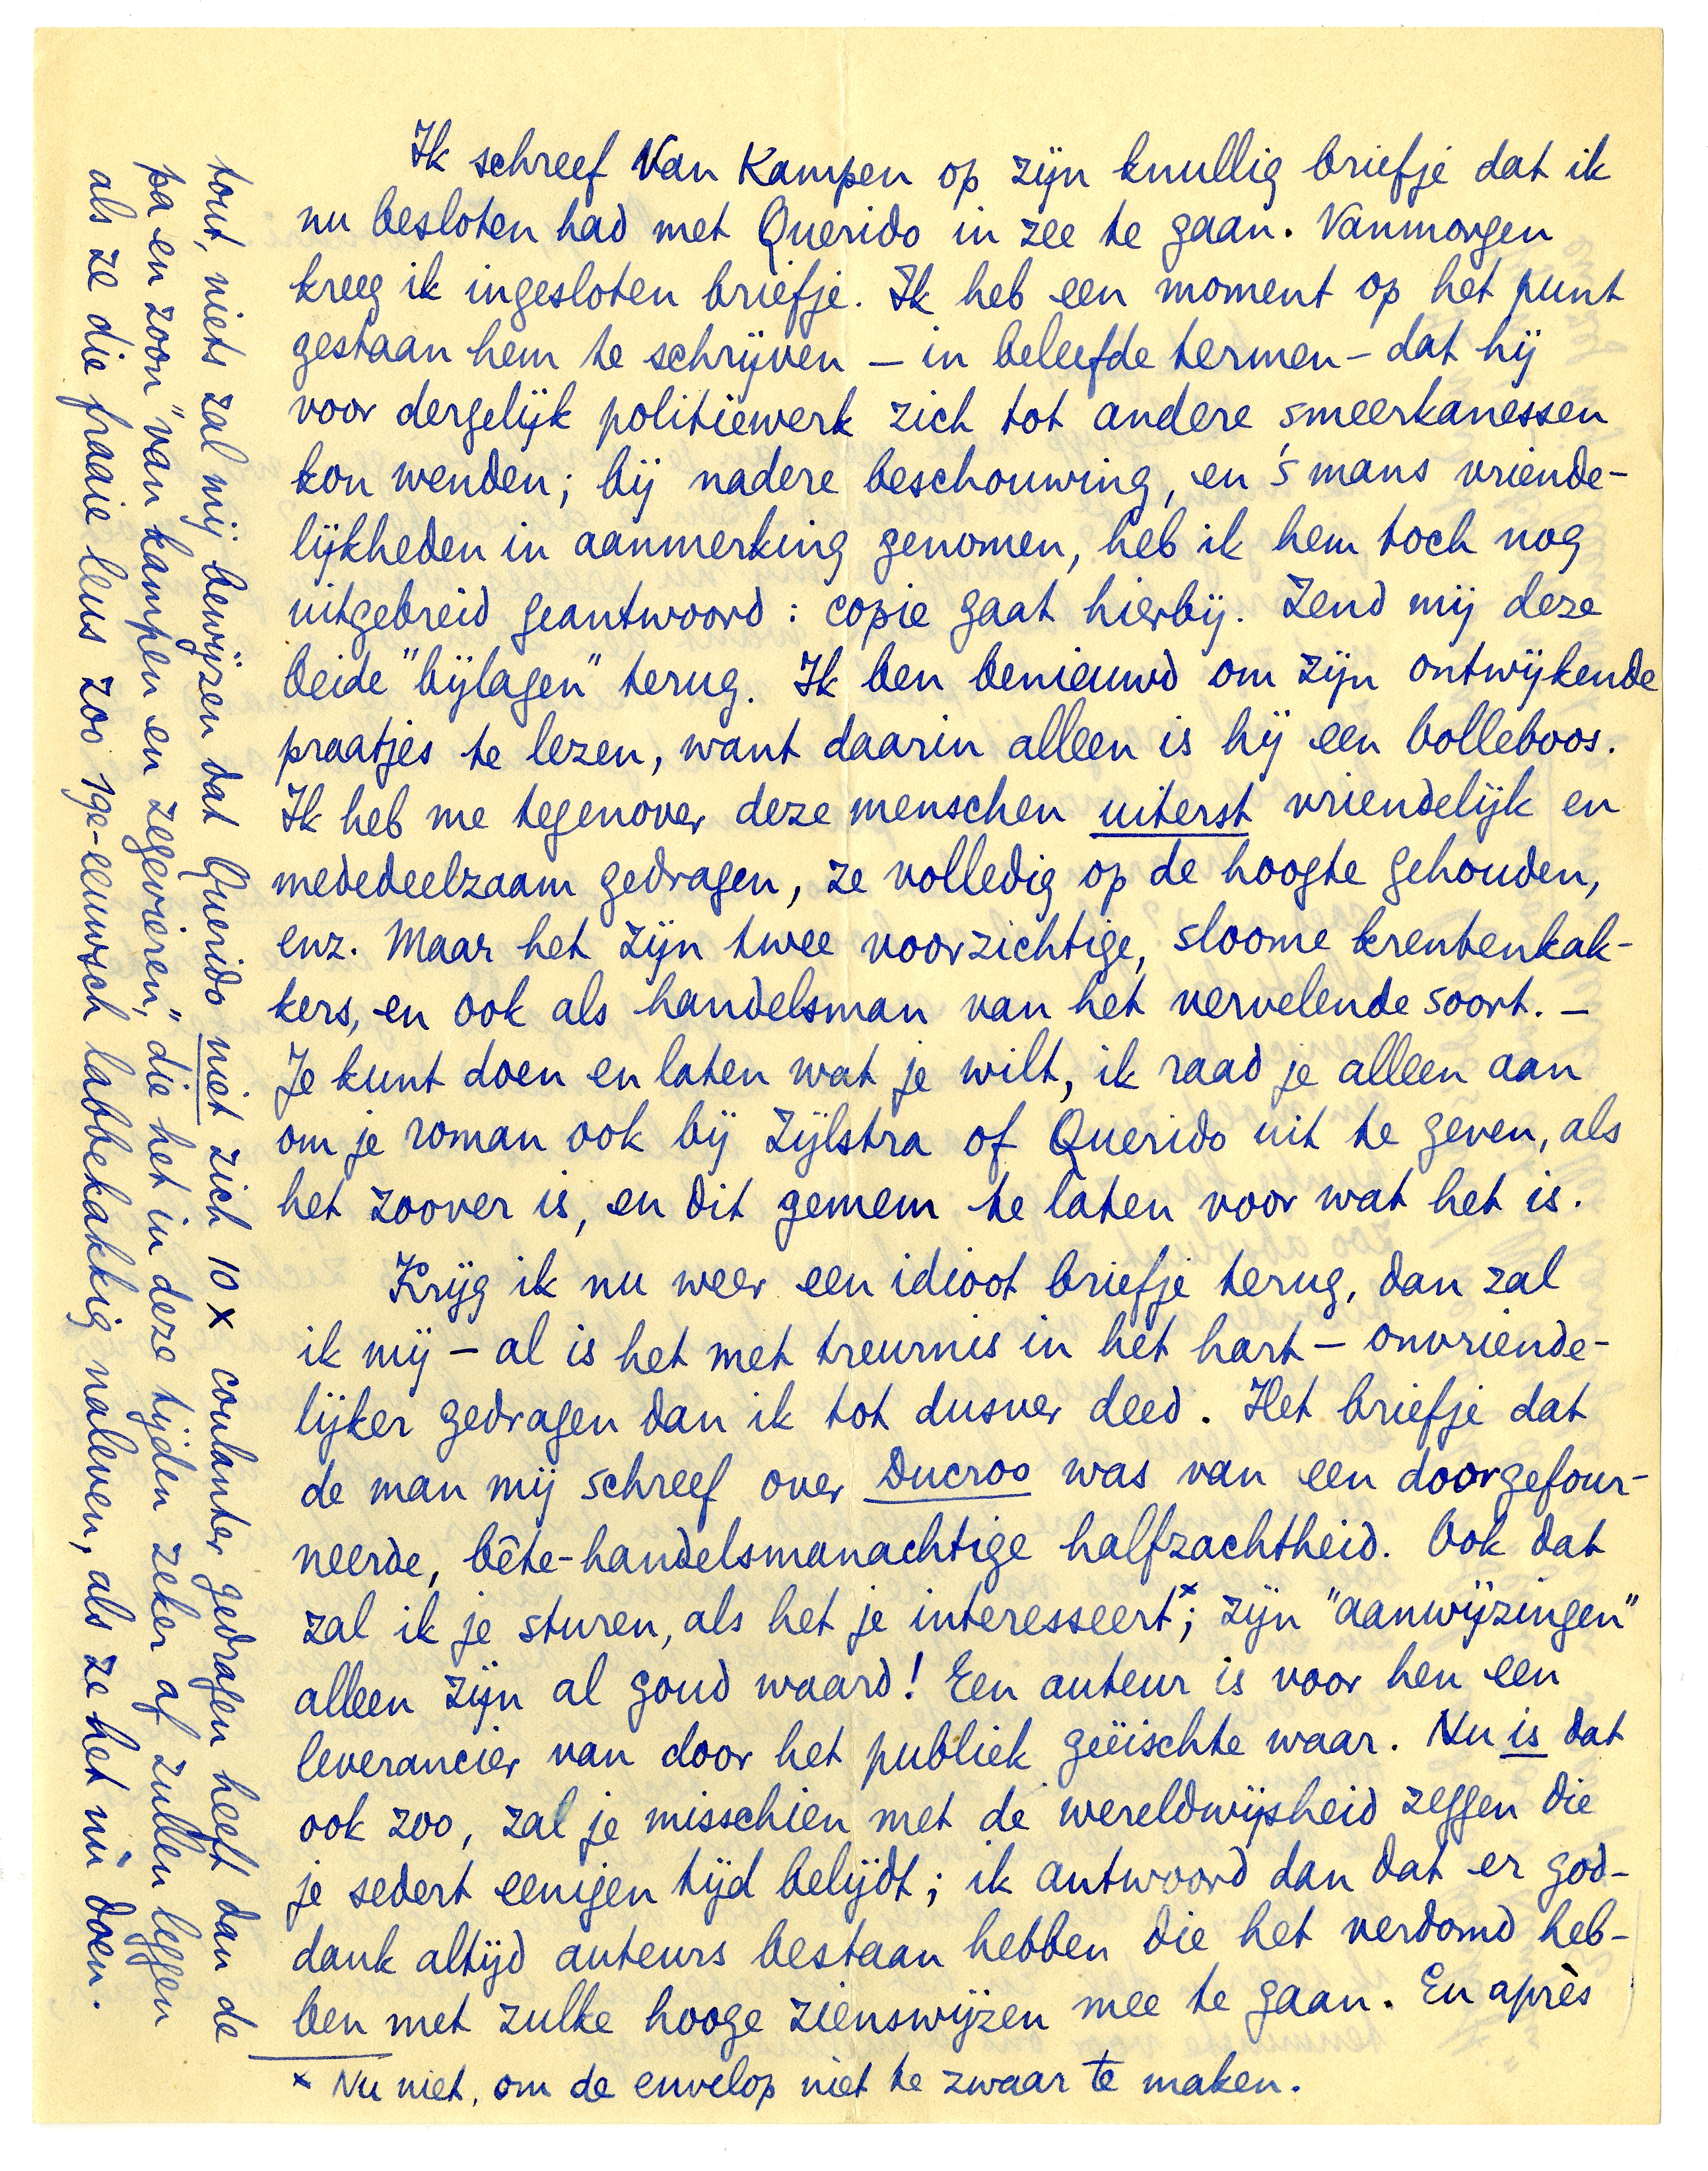 Ik schreef Van Kampen op zijn knullig briefje dat ik
nu besloten had met Querido in zee te gaan. Vanmorgen
kreeg ik ingesloten briefje. Ik heb een moment op het punt
gestaan hem te schrijven – in beleefde termen – dat hij
voor dergelijk politiewerk zich tot andere smeerkanessen
kon wenden; bij nadere beschouwing, en 's mans vriende-
lijkheden in aanmerking genomen, heb ik hem toch nog
uitgebreid geantwoord: copie gaat hierbij. Zend mij deze
beide "bijlagen" terug. Ik ben benieuwd om zijn ontwijkende
praatjes te lezen, want daarin alleen is hij een bolleboos.
Ik heb me tegenover deze menschen uiterst vriendelijk en
mededeelzaam gedragen, ze volledig op de hoogte gehouden,
enz. Maar het zijn twee voorzichtige, sloome krentenkak-
kers, en ook als handelsman van het vervelende soort. –
Je kunt doen en laten wat je wilt, ik raad je alleen aan
om je roman ook bij Zijlstra of Querido uit te geven, als
het zoover is, en dit gemem te laten voor wat het is.
Krijg ik nu weer een idioot briefje terug, dan zal
ik mij – al is het met treurnis in het hart – onvriende-
lijker gedragen dan ik tot dusver deed. Het briefje dat
de man mij schreef over Ducroo was van een doorgefour-
neerde, bête-handelsmanachtige halfzachtheid. Ook dat
zal ik je sturen, als het je interesseert x; zijn "aanwijzingen"
alleen zijn al goud waard! Een auteur is voor hen een
leverancier van door het publiek geëischte waar. Nu is dat
ook zoo, zal je misschien met de wereldwijsheid zeggen die
je sedert eenigen tijd belijdt; ik antwoord dan dat er god-
dank altijd auteurs bestaan hebben die het verdomd heb-
ben met zulke hooge zienswijzen mee te gaan. En après
x Nu niet, om de envelop niet te zwaar te maken.
tout, niets zal mij bewijzen dat Querido niet zich 10 x coulanter gedragen heeft dan de
pa en zoon "van kampen en zegevieren," die het in deze tijden zeker af zullen leggen
als ze die fraaie leus zoo 19e-eeuwsch labbekakkig naleven, als ze het nù doen.